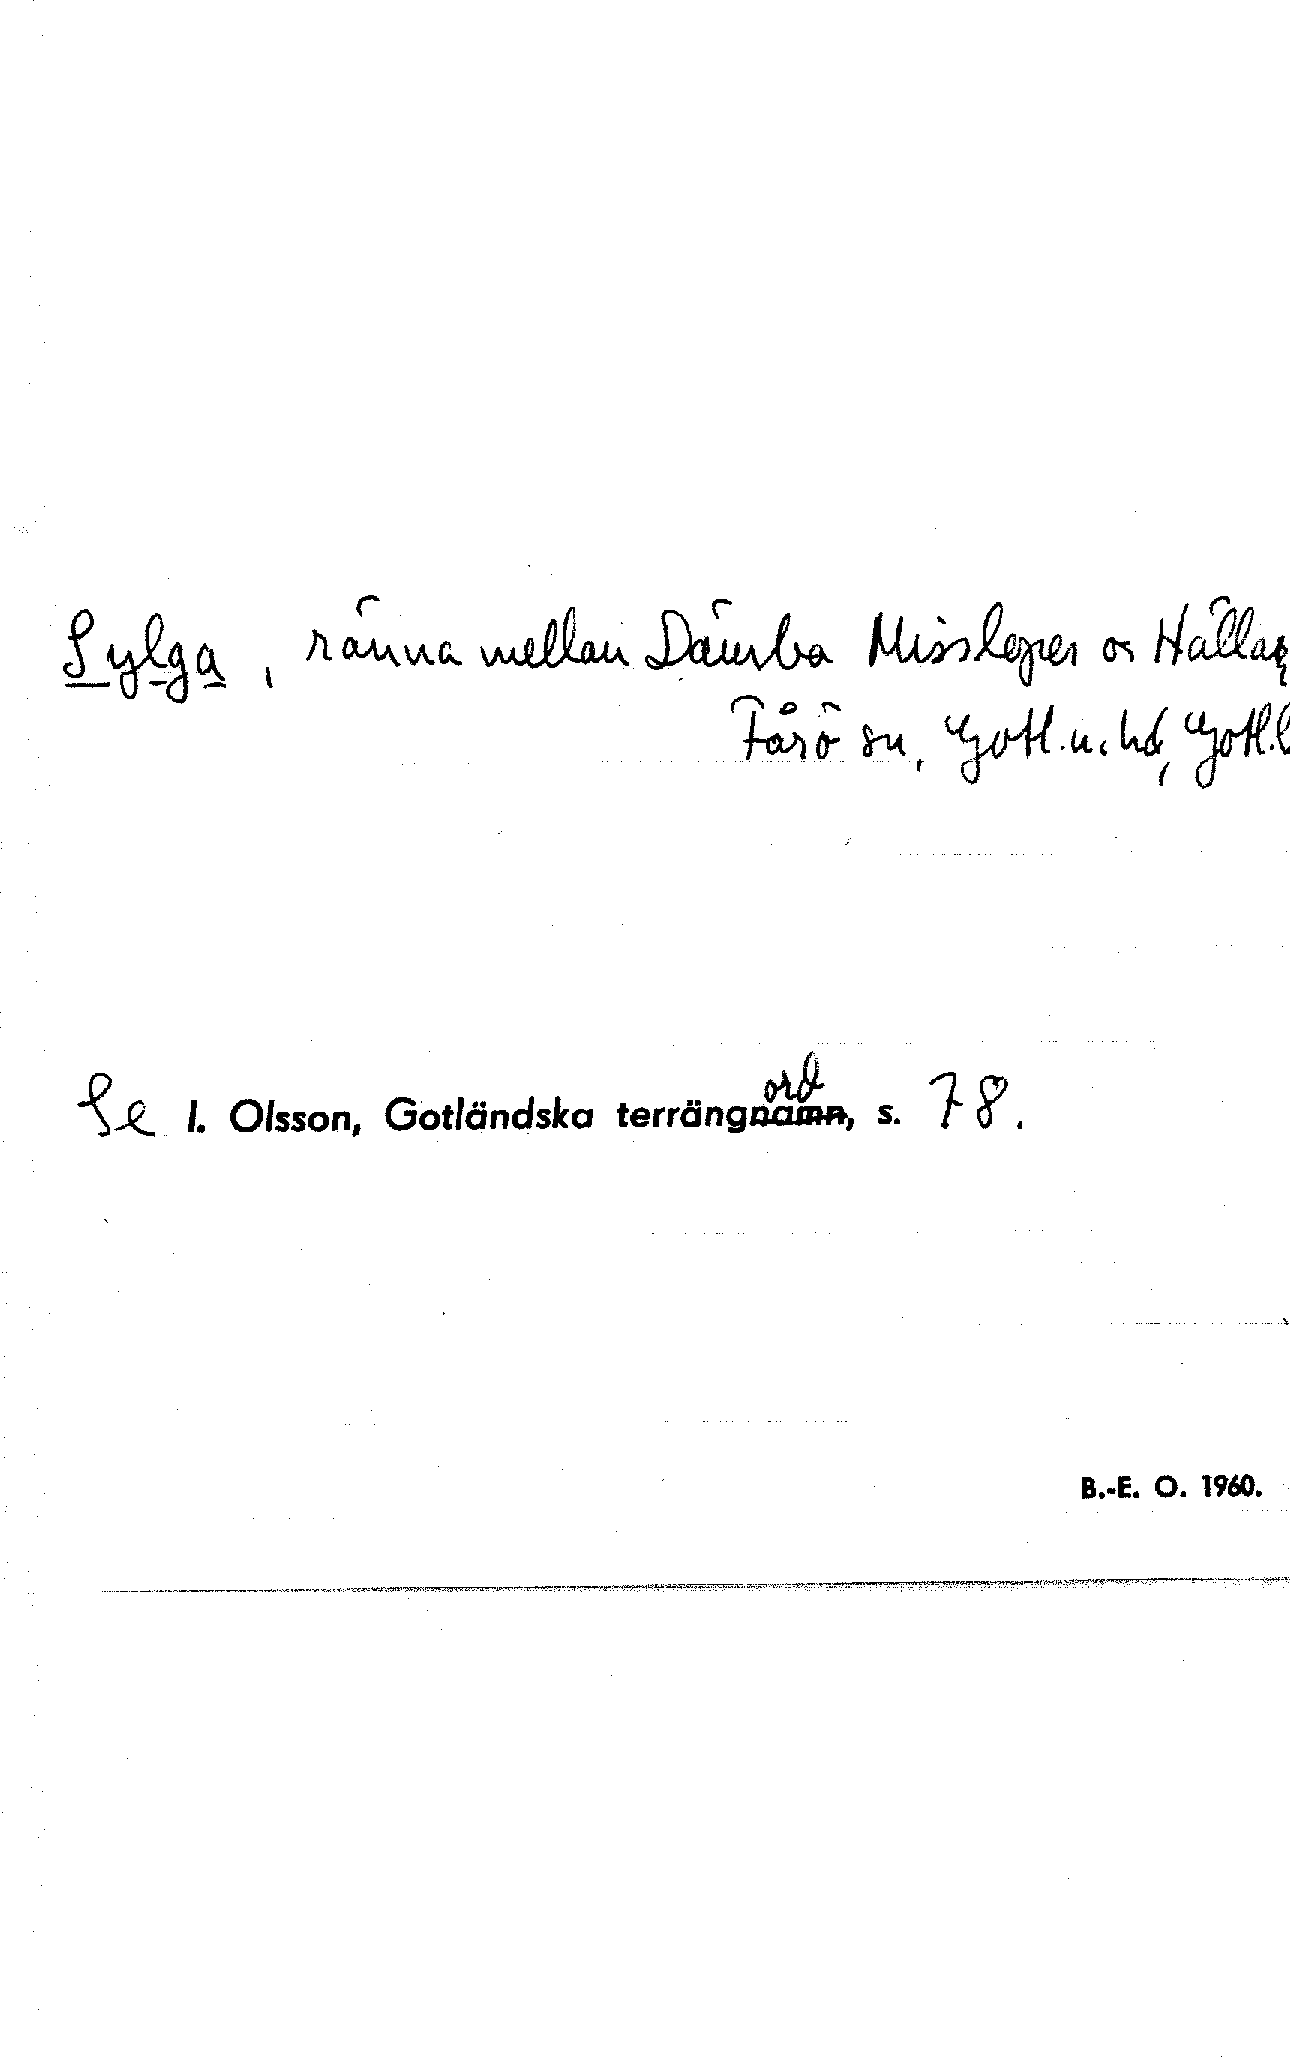 Sylga, ränna mellan Dämba Missloper o. Hällar
Fårö sn, Gotl. n. hd, Gotl. l
Se I. Olsson, Gotländska terrängord, s. 78.
B.-E. O. 1960.